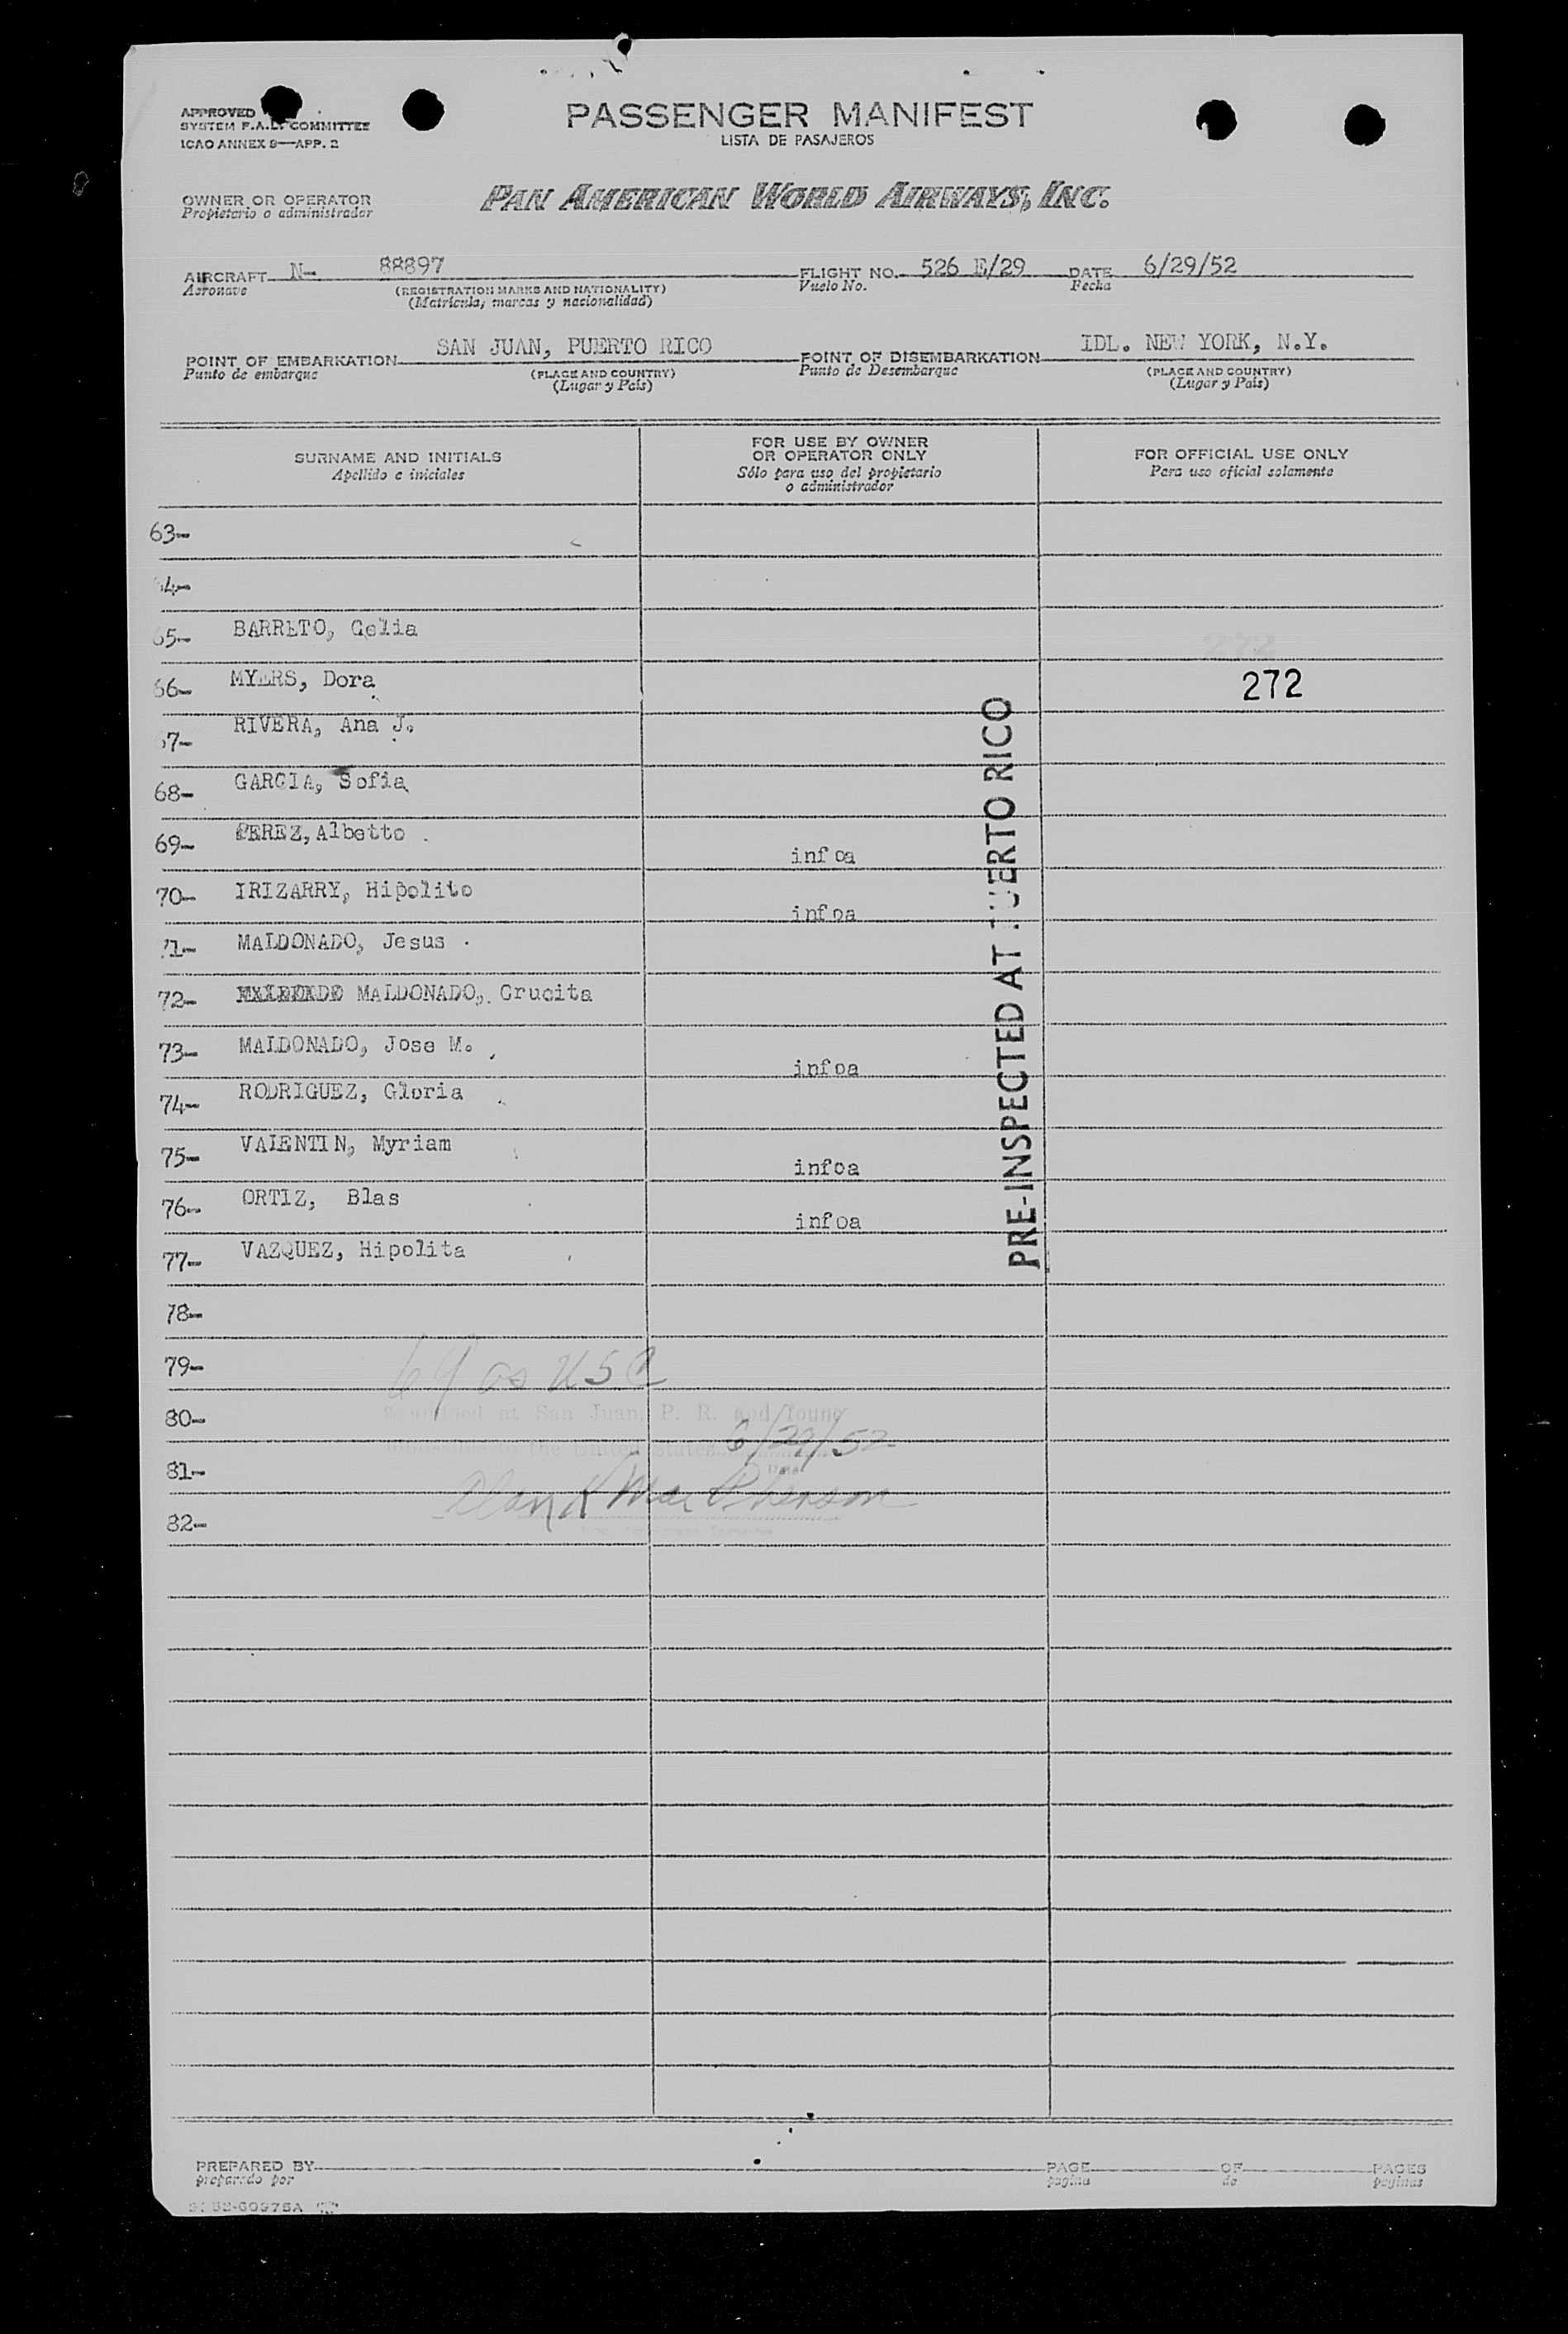 APPROVED
SYSTEM F.A.L. COMMITTEE
ICAO ANNEX 9—APP. 2
PASSENGER MANIFEST
LISTA DE PASAJEROS
OWNER OR OPERATOR
Propietario o administrador
PAN AMERICAN WORLD AIRWAYS, INC.
AIRCRAFT N- 88897 FLIGHT NO. 526 E/29 DATE 6/29/52
Aeronave (REGISTRATION MARKS AND NATIONALITY) Vuelo No. Fecha
(Matricula, marcas y nacionalidad)
POINT OF EMBARKATION SAN JUAN, PUERTO RICO POINT OF DISEMBARKATION IDL. NEW YORK, N.Y.
Punto de embarque (PLACE AND COUNTRY) Punto de Desembarque (PLACE AND COUNTRY)
(Lugar y País) (Lugar y País)
SURNAME AND INITIALS
Apellido e iniciales
FOR USE BY OWNER
OR OPERATOR ONLY
Sólo para uso del propietario
o administrador
FOR OFFICIAL USE ONLY
Para uso oficial solamente
63-
64-
65- BARRETO, Celia
272
66- MYERS, Dora 272
67- RIVERA, Ana J.
68- GARCIA, Sofia
69- PEREZ, Albetto . infoa
70- IRIZARRY, Hipolito infoa
71- MALDONADO, Jesus .
72- MALDONADO, Crucita
73- MALDONADO, Jose M. infoa
74- RODRIGUEZ, Gloria
75- VALENTIN, Myriam infoa
76- ORTIZ, Blas infoa
77- VAZQUEZ, Hipolita
PRE-INSPECTED AT PUERTO RICO
78-
79- 69 as USC
80- at San Juan, P. R. and found
81- to the United States 6/29/52
Date
82-
PREPARED BY PAGE OF PAGES
preparado por pagina de paginas